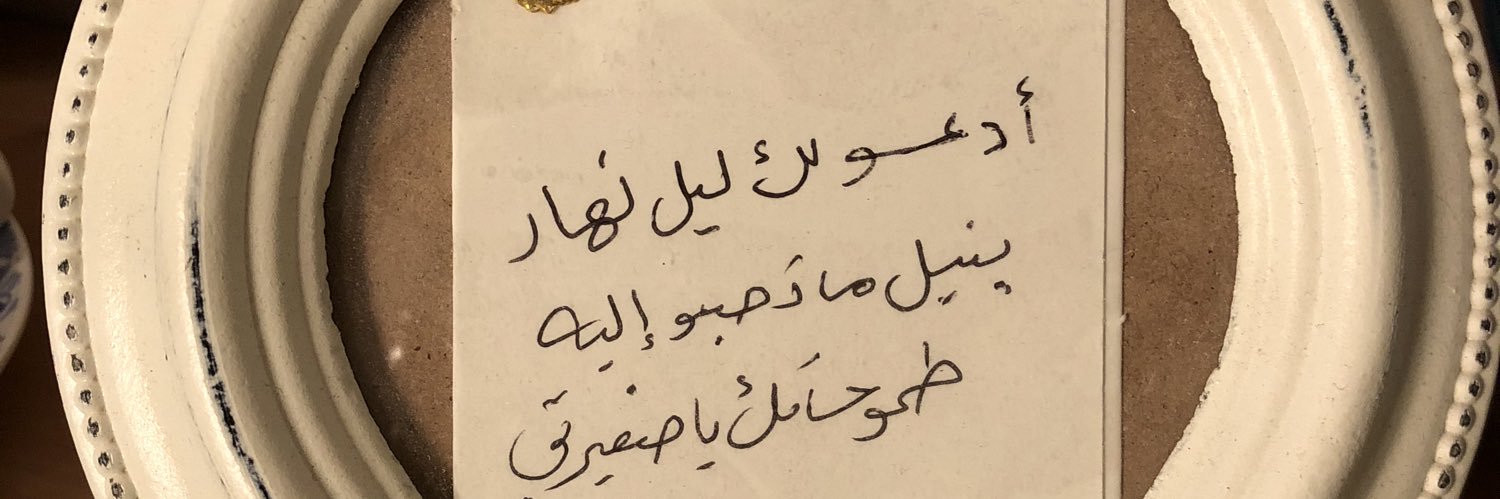 أدعو لك ليل نهار
بنيل ما تصبو إليه
طموحاتك يا صغيرتي